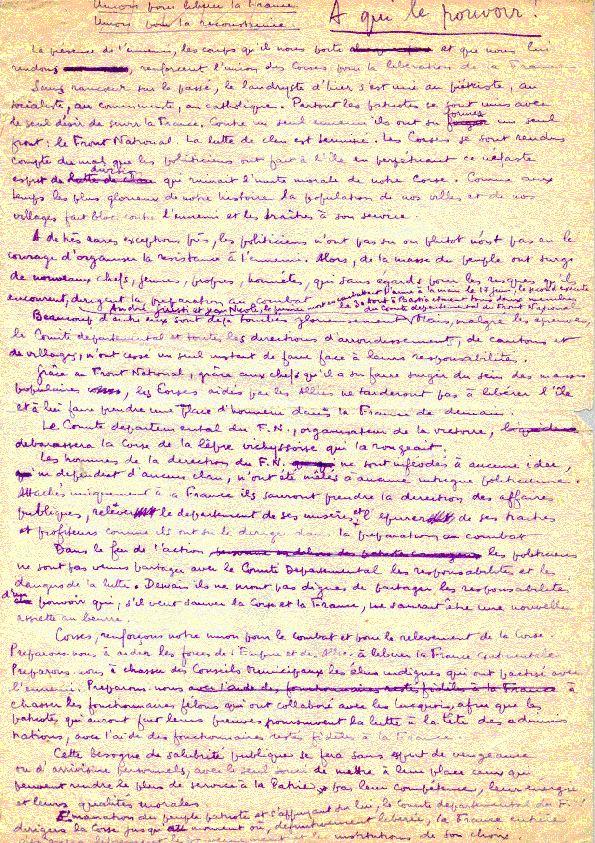 Unissons pour libérer la France
Unissons pour la reconstruire
A qui le pouvoir !
La présence de l'ennemi, les coups qu'il nous porte et que nous lui
rendons, renforcent l'union des Corses pour la libération de la France
Sans rancœur sur le passé, le landryste d'hier s'est uni au piétriste, au
socialiste, au communiste, au catholique. Partout les patriotes se sont unis avec
le seul désir de servir la France. Contre un seul ennemi ils ont su former un seul
front : le Front National. La lutte de clan est . Les Corses se sont rendus
compte du mal que les politiciens ont fait à l'île en perpétuant ce néfaste
esprit de division qui ruinait l'unité morale de notre Corse. Comme aux
temps les plus glorieux de notre histoire la population de nos villes et de nos
villages fait bloc contre l'ennemi et les traîtres à son service.
A de très rares exceptions près, les politiciens n'ont pas su ou plutôt n'ont pas eu le
courage d'organiser la résistance à l'ennemi. Alors, de la masse du peuple ont surgi
de nouveaux chefs, jeunes, propres, honnêtes, qui sans égards pour les risques qu'ils
encourent, dirigent la préparation au combat.
André Giusti et Jean Nicoli, le premier mort en combattant l'arme à la main le 17 juin, le second exécuté
le 30 Août à Bastia étaient tous deux membres
du Comité départemental du Front National
Beaucoup d'entre eux sont déjà tombés glorieusement Mais, malgré les épreuves,
le Comité départemental et toutes les directions d'arrondissement, de cantons et
de villages, n'ont cessé un seul instant de faire face à leurs responsabilités.
Grâce au Front National, grâce aux chefs qu'il a su faire surgir du sein des masses
populaires, les Corses aidés par les Alliés ne tarderont pas à libérer l'île
et à lui faire prendre une place d'honneur dans la France de demain.
Le Comité départemental du F.N., organisateur de la victoire,
débarassera la Corse de la lèpre vichyssoise qui la rongeait.
Les hommes de la direction du F.N. ne sont inféodés à aucune idée,
qui ne dépendent d'aucun clan, n'ont été mêlés à aucune intrigue politicienne.
Attachés uniquement à la France ils sauront prendre la direction des affaires
publiques, relever le département de ses misères et l'épurer de ses traîtres
et profiteurs comme ils ont su le diriger dans la préparation au combat
Dans le feu de l'action les politiciens
ne sont pas venus partager avec le Comité Départemental les responsabilités et les
dangers de la lutte. Demain ils ne seront pas dignes de partager les responsabilités
d'un pouvoir qui, s'il veut sauver la Corse et la France, ne saurait être une nouvelle
assiette au beurre.
Corses, renforçons notre union pour le combat et pour le relèvement de la Corse.
Préparons-nous à aider les forces de l'Empire et des Alliés à libérer la France continentale
Préparons-nous à chasser des Conseils Municipaux les élus indignes qui ont pactisé avec
l'ennemi. Préparons-nous avec l'aide des fonctionnaires restés fidèles à la France à
chasser les fonctionnaires félons qui ont collaboré avec les Lucquois, afin que les
patriotes qui auront fait leurs preuves poursuivent la lutte à la tête des adminis
trations, avec l'aide des fonctionnaires restés fidèles à la France.
Cette besogne de salubrité publique se fera sans esprit de vengeance
ou d'arrivisme personnels, avec le seul souci de mettre à leur place ceux qui
peuvent rendre le plus de service à la Patrie, par leur compétence, leur énergie
et leurs qualités morales.
Emanation du peuple patriote et s'appuyant sur lui, le Comité départemental du F.N
dirigera la Corse jusqu'au moment où, définitivement libérée, la France entière
librement le gouvernement et les institutions de son choix.